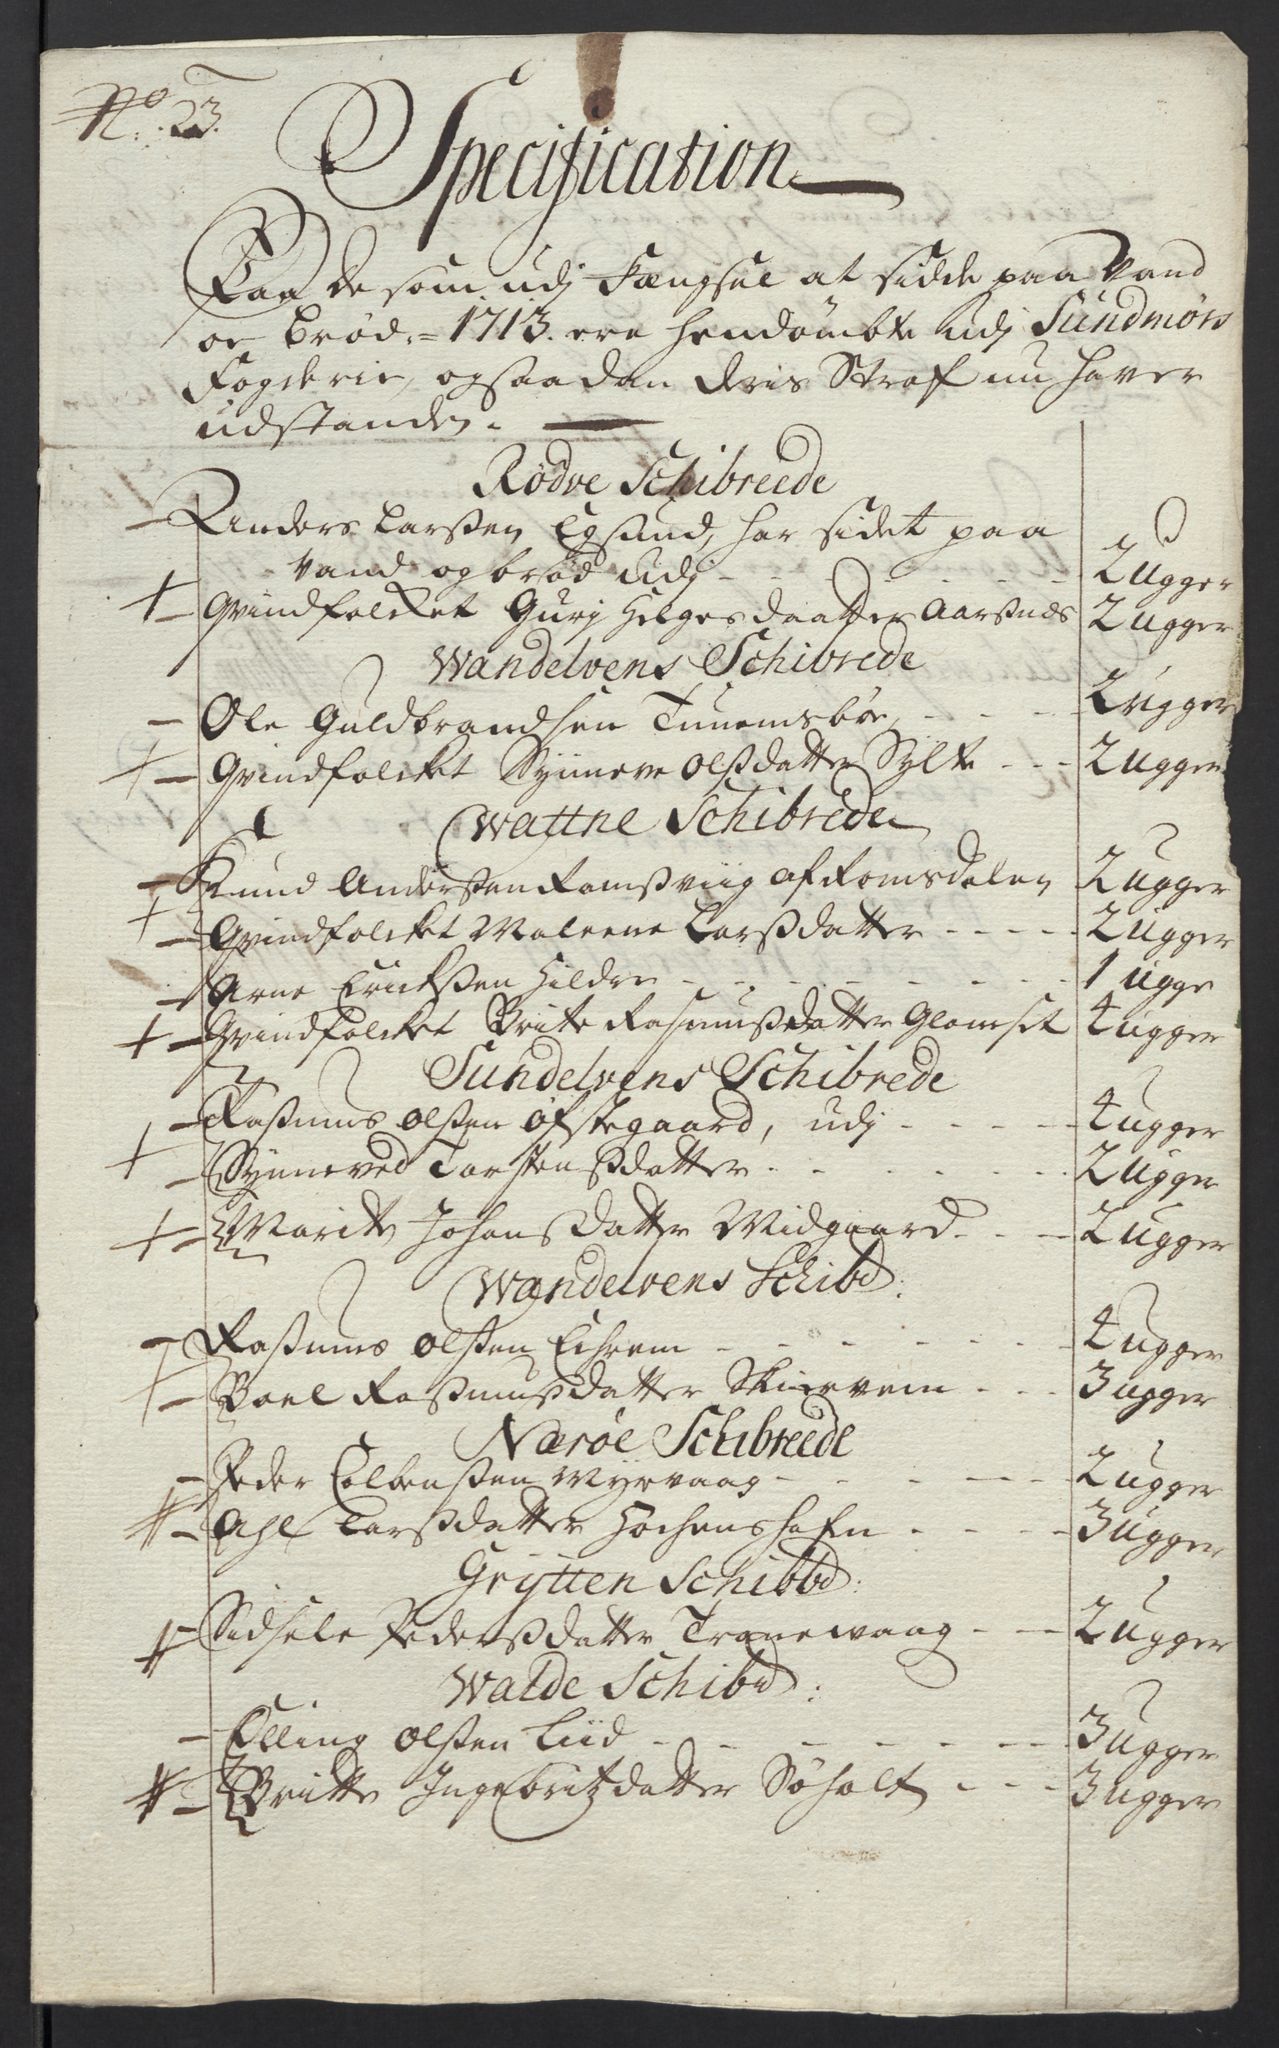 No: 23.
Specification
Paa de som udj Fængsel at sidde paa Vand
oc Brød = 1713. ere hendømbte udj Sundmørs
Fogderie, ogsaadan deris Straf nu hafver
udstanden.
Rødve Schibreede
Anders Larßen Egsund, har sidet paa
Vand og brød udj - - - - - - - 2 Ugger
Qvindfolcket Gurj Helgesdaatter Aarßnæs 2 ugger
Wandelvens Schibrede
Ole Guldbrandsen Tunemsbøe, - - - 2 ugger
Qvindfolcket Synneve Olßdatter Sylte - - - 2 ugger
Wattne Schibrede
Knud Anderßen Ramßviig af Romsdalen 2 ugger
Qvindfolcket Maleene Larßdatter - - - - - 2 ugger
Arne Erickßen Hildre - - - - - - - 1 ugge
Qvindfolcket Brite Rasmußdatter Glomset 4 ugger
Sundelvens Schibrede
Raßmus Olßen Ofstegaard, udj - - - - - 4 ugger
Synneved Torstenßdatter - - - - - - 2 ugger
Marite Johanßdatter Midgaard - - - 2 ugger
Wandelvens Schibd:
Raßmus Olßen Echrem - - - - - - - 4 ugger
Boel Raßmußdatter Skiervem - - - 3 ugger
Narøe Schibreede
Peder Colbenßen Myrvaag - - - - - - 2 ugger
Ahl Larßdatter Hochenshafn - - - - 3 ugger
Grytten Schibbd:
Sidsele Pederßdatter Tranewaag - - - 2 ugger
Walde Schibd:
Elling Olßen Liid - - - - - - - 3 ugger
Britte Ingebritzdatter Søholt - - - 3 ugger